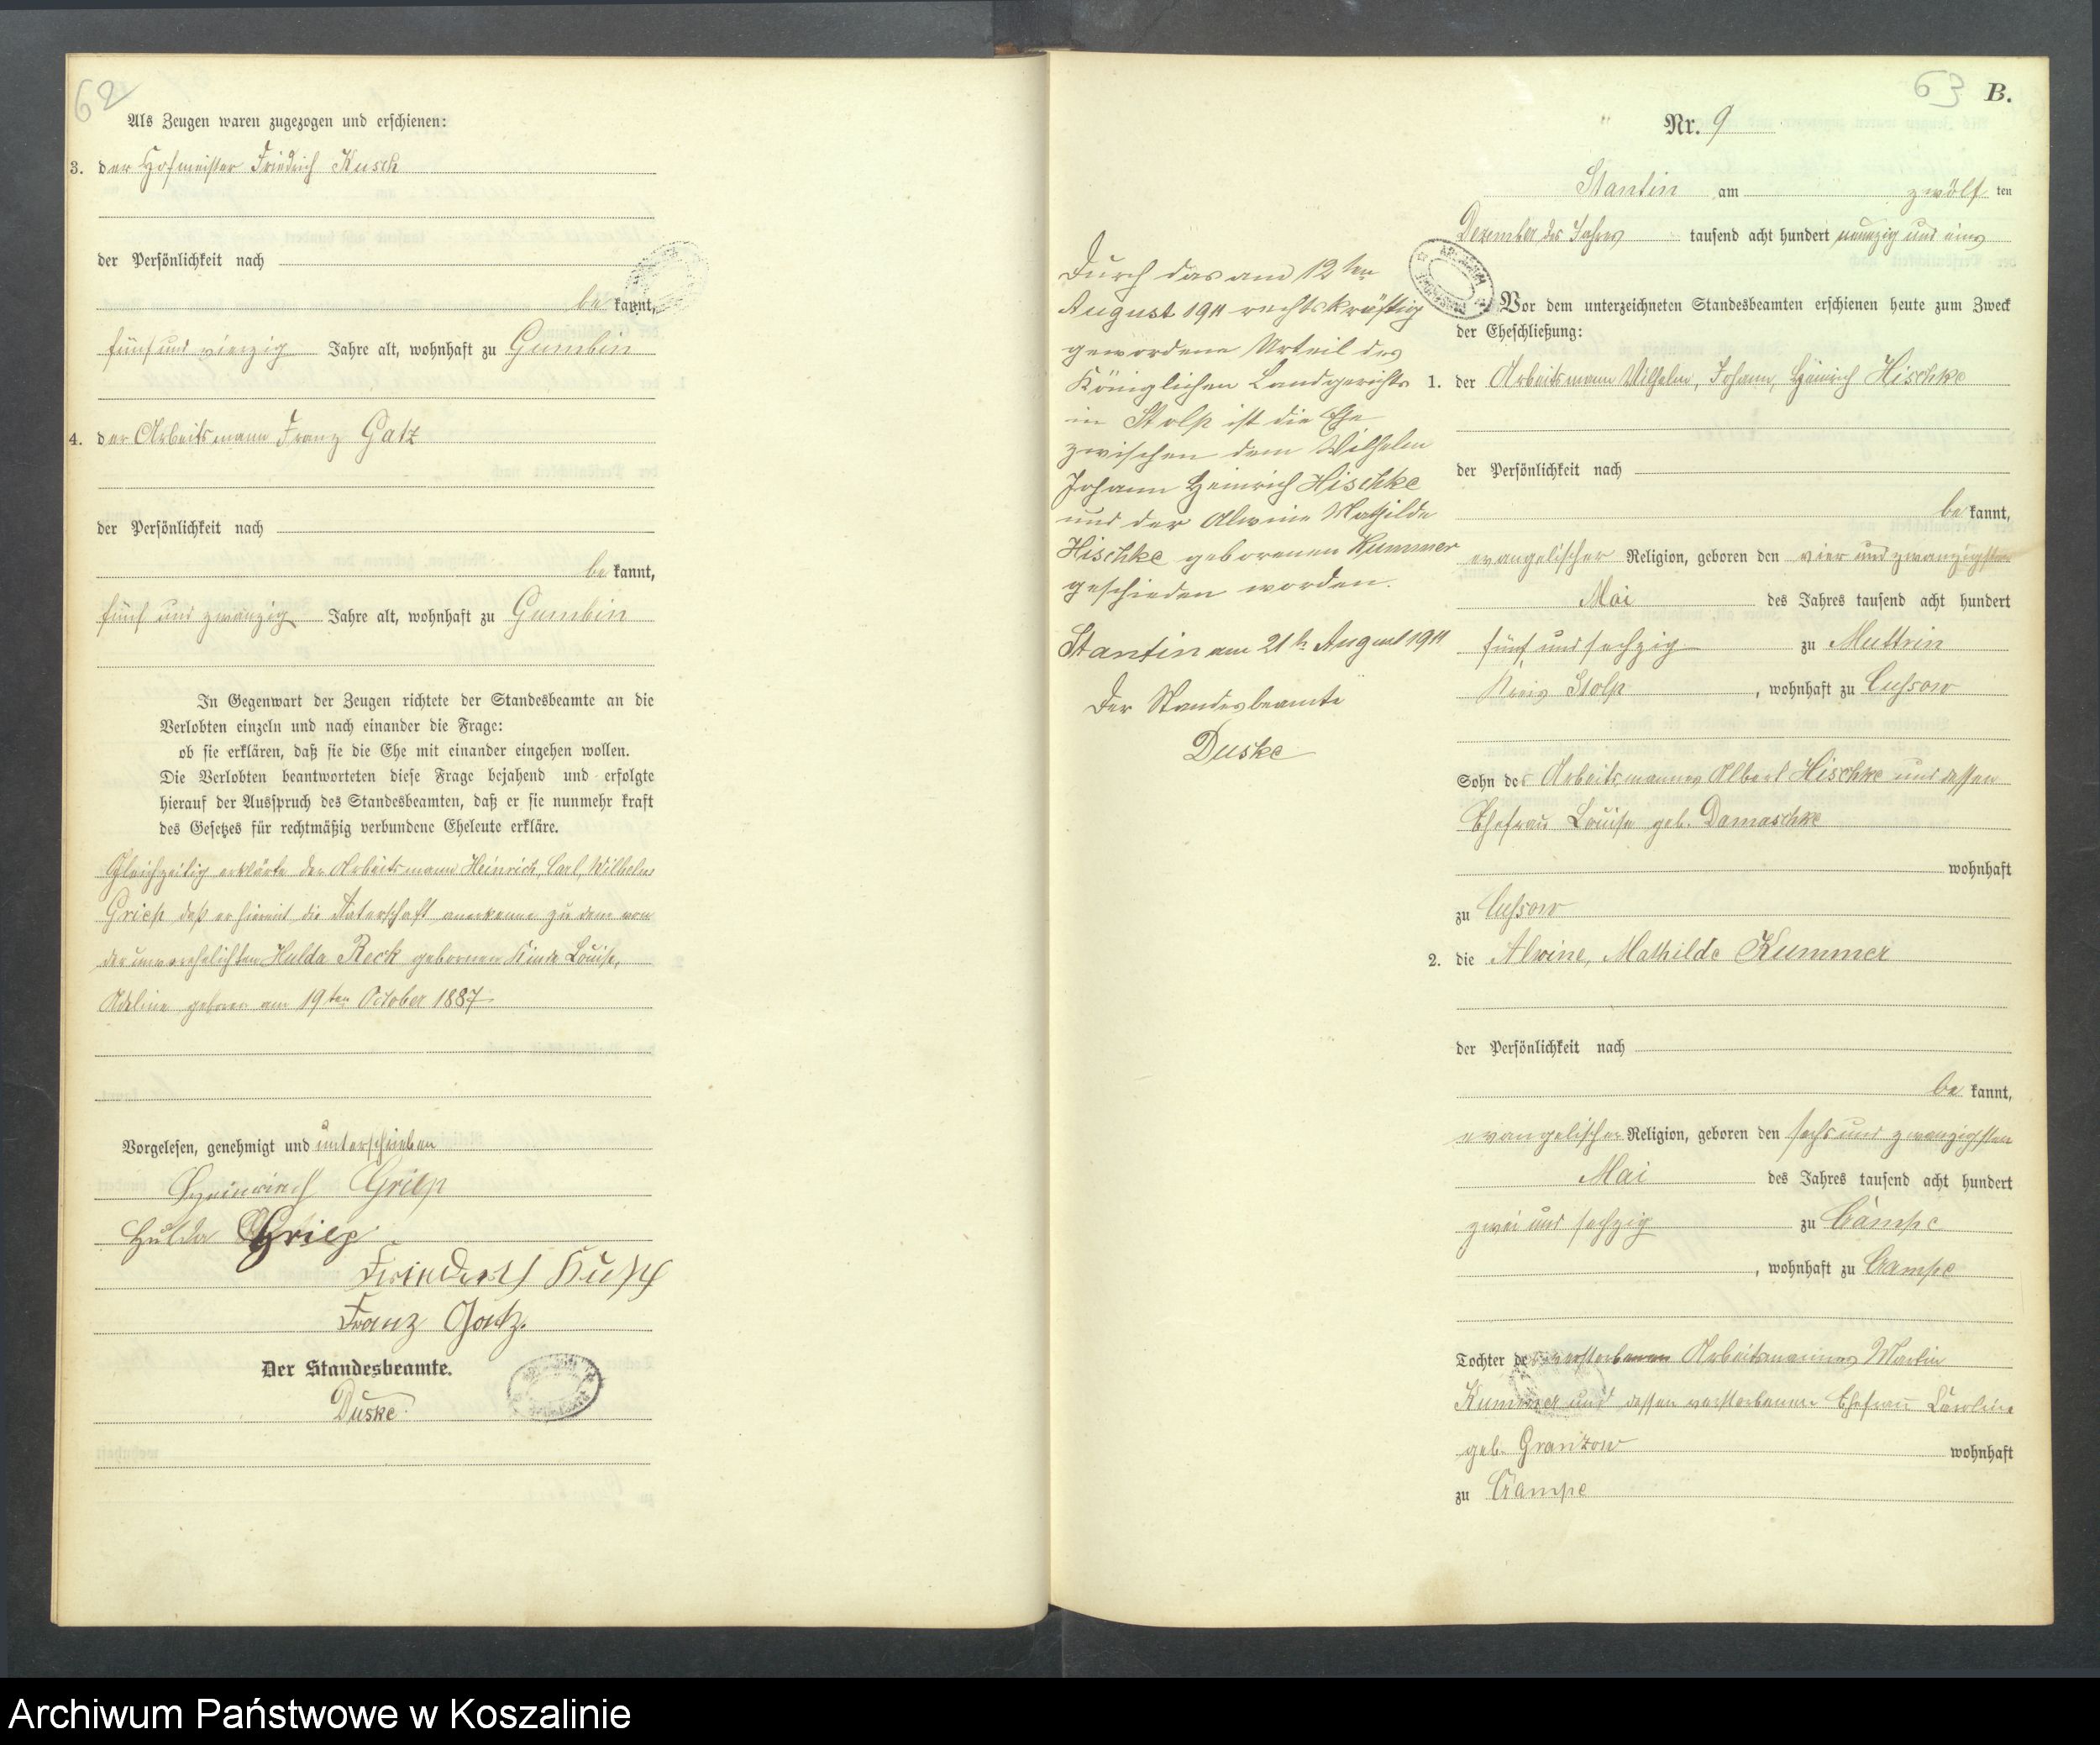 62
Als Zeugen waren zugezogen und erschienen:
3. der Hofmeister Friedrich Kusch
der Persönlichkeit nach
be kannt,
fünf und vierzig Jahre alt, wohnhaft zu Gumbin
4. der Arbeitsmann Franz Gatz
der Persönlichkeit nach
be kannt,
fünf und zwanzig Jahre alt, wohnhaft zu Gumbin
In Gegenwart der Zeugen richtete der Standesbeamte an die
Verlobten einzeln und nach einander die Frage:
ob sie erklären, daß sie die Ehe mit einander eingehen wollen.
Die Verlobten beantworteten diese Frage bejahend und erfolgte
hierauf der Ausspruch des Standesbeamten, daß er sie nunmehr kraft
des Gesetzes für rechtmäßig verbundene Eheleute erkläre.
Gleichzeitig erklärte der Arbeitsmann Heinrich, Carl, Wilhelm
Griep daß er hiermit die Vaterschaft anerkenne zu dem von
der unverehelichten Hulda Reck gebornen Kinde Louise,
geboren am 19ten October 1887
Vorgelesen, genehmigt und unterschrieben
Heinrich Griep
Hulda Griep
Friedrich Kusch
Franz Gatz.
Der Standesbeamte.
Duske.
63 B.
Nr. 9
Stantin am zwölf ten
Dezember des Jahres tausend acht hundert neunzig und eins
Vor dem unterzeichneten Standesbeamten erschienen heute zum Zweck
der Eheschließung:
1. der Arbeitsmann Wilhelm, Johann, Heinrich Hischke
der Persönlichkeit nach
be kannt,
evangelischer Religion, geboren den vier und zwanzigsten
Mai des Jahres tausend acht hundert
fünf und sechzig zu Muttrin
Kreis Stolp, wohnhaft zu Cussow
Sohn des Arbeitsmannes Albert Hischke und dessen
Ehefrau Louise geb. Damaschke
wohnhaft
zu Cussow
2. die Alwine, Mathilde Kummer
der Persönlichkeit nach
be kannt,
evangelischer Religion, geboren den sechs und zwanzigsten
Mai des Jahres tausend acht hundert
zwei und sechzig zu Campe
, wohnhaft zu Campe
Tochter des verstorbenen Arbeitsmannes Martin
Kummer und dessen verstorbenen Ehefrau Caroline
geb. Granzow wohnhaft
zu Campe
Durch das am 12ten
August 1911 rechtskräftig
gewordene Urteil des
Königlichen Landgerichts
in Stolp ist die Ehe
zwischen dem Wilhelm
Johann Heinrich Hischke
und der Alwine Mathilde
Hischke geborenen Kummer
geschieden worden.
Stantin am 21t August 1911
Der Standesbeamte
Duske
Archiwum Państwowe w Koszalinie